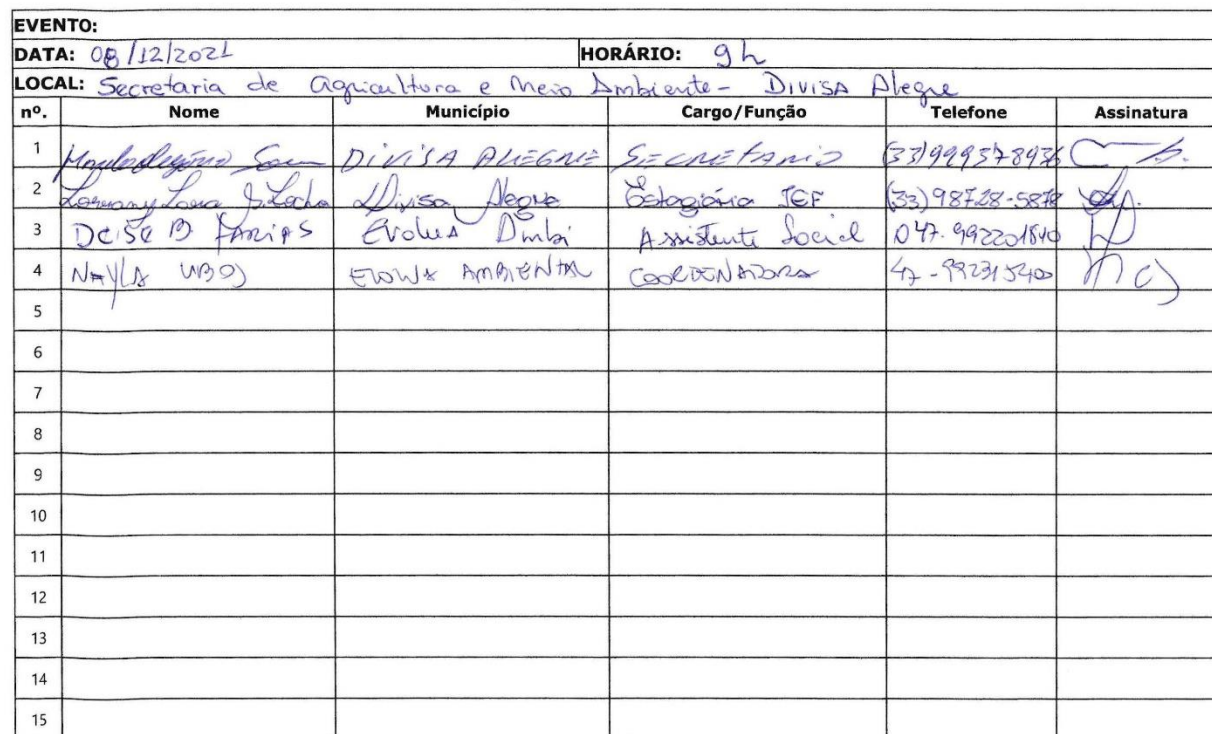 EVENTO:
DATA: 08/12/2021 HORÁRIO: 9h
LOCAL: Secretaria de Agricultura e Meio Ambiente - Divisa Alegre
nº. Nome Município Cargo/Função Telefone Assinatura
1 DIVISA ALEGRE SECRETARIO (33)999378936
2 Divisa Alegre Estagiária IEF (33)98728-5878
3 Deise B Farias Evolua Ambi Assistente Social 047.992201840
4 NAYLA AMBIENTAL COORDENADORA 47-992315400
5
6
7
8
9
10
11
12
13
14
15